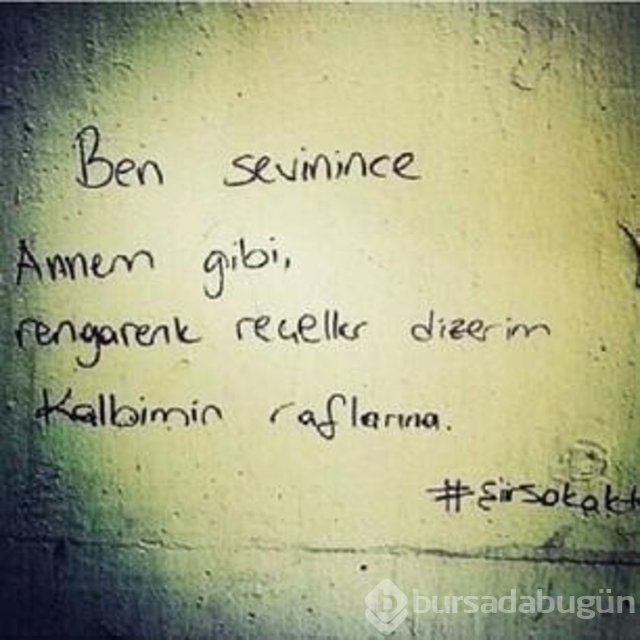 Ben sevinince
Annem gibi,
rengarenk reçeller dizerim
Kalbimin raflarına.
#şiirsokakt
bursadabugün